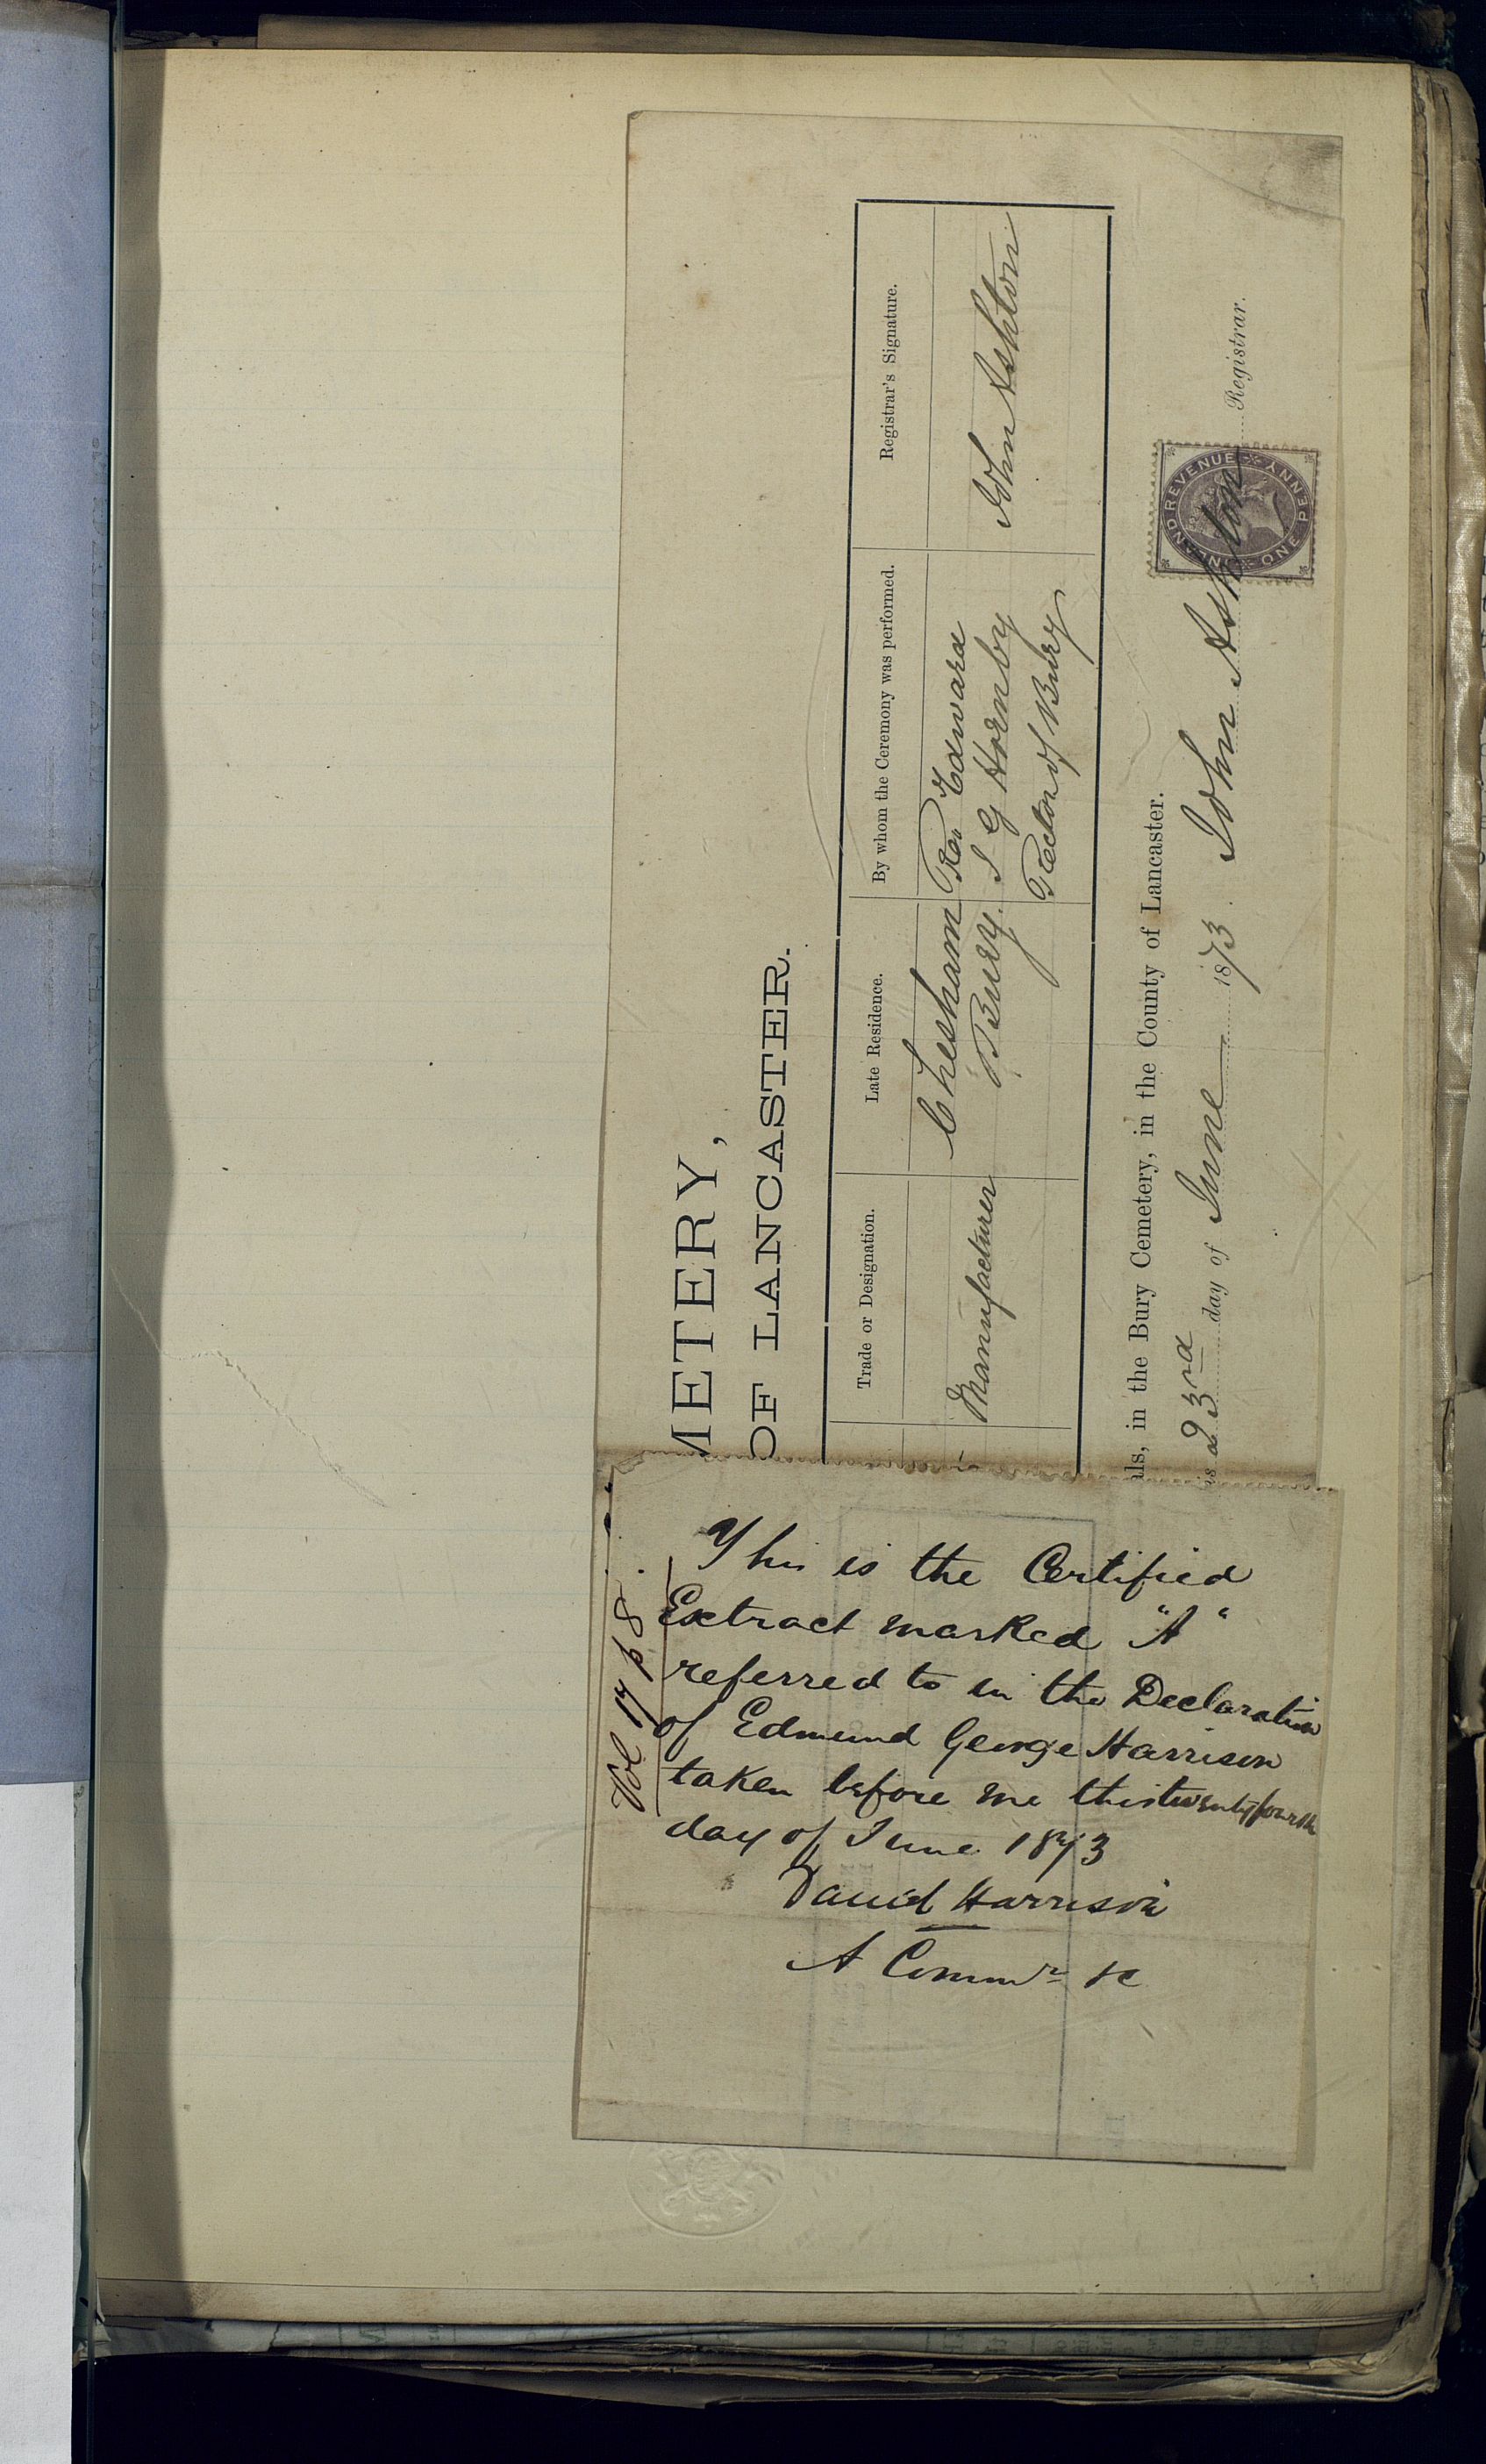 METERY,
OF LANCASTER.
Trade or Designation.
Late Residence.
By whom the Ceremony was performed.
Registrar's Signature.
Manufacturer
Chesham
Bury.
Rev Edward
J G Hornby
Rector of Bury
John Ashton
als, in the Bury Cemetery, in the County of Lancaster.
is 23rd day of June 1873. John Ashton Registrar.
INLAND REVENUE
ONE PENNY
Vol 17 p 8
This is the Certified
Extract marked "A"
referred to in the Declaration
of Edmund George Harrison
taken before me this twenty fourth
day of June 1873
David Harrison
A Commr &c